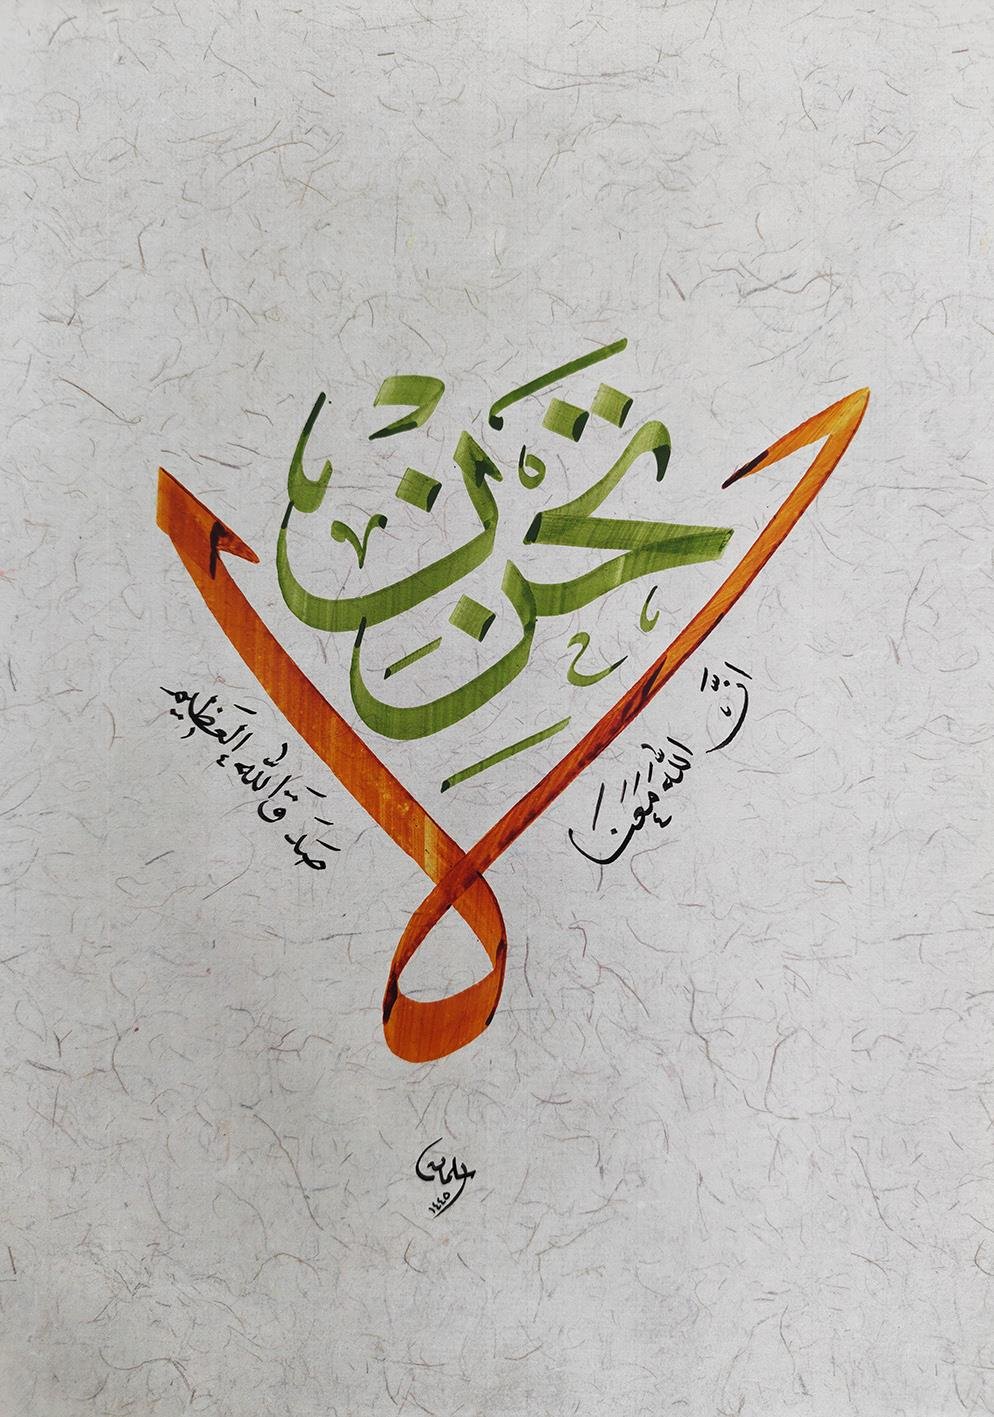 لا
تحزن
ان الله معنا
صدق الله العظيم
١٤٤٥